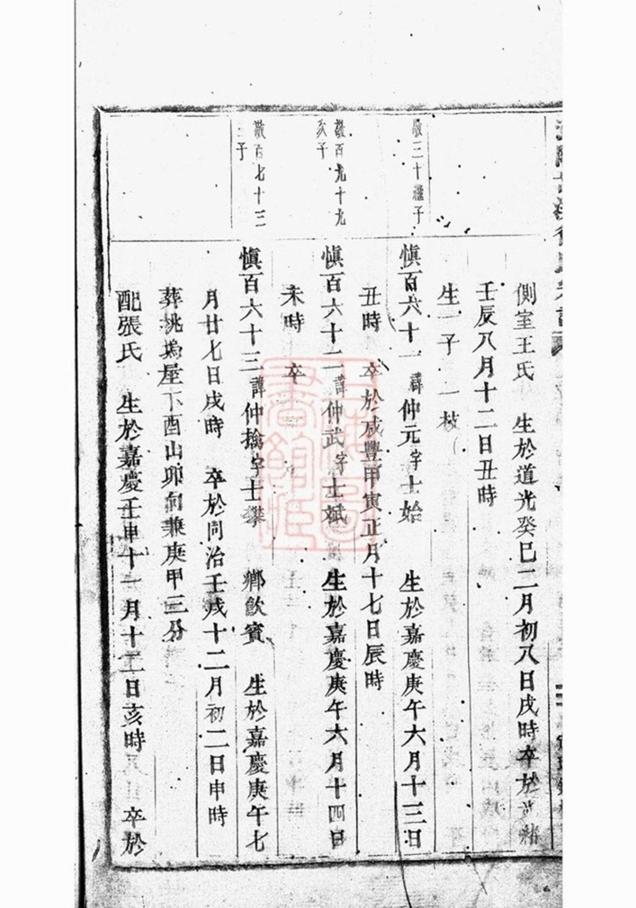 側室王氏　生於道光癸巳二月初八日戌時卒於光緒
壬辰八月十二日丑時
生一子　一枝
繼子
慎百六十一諱仲元字士始　生於嘉慶庚午六月十三日
丑時　卒於咸豐甲寅正月十七日辰時
敬百九十九
亥子
慎百六十二諱仲武字士斌　生於嘉慶庚午六月十四日
未時　卒
敬百七十三
子
慎百六十三諱仲擒字士攀　鄉飲賓　生於嘉慶庚午七
月廿七日戌時　卒於同治壬戌十二月初二日申時
葬桃塢屋下酉山卯向兼庚甲三分
配張氏　生於嘉慶壬申十一月十二日亥時　卒於